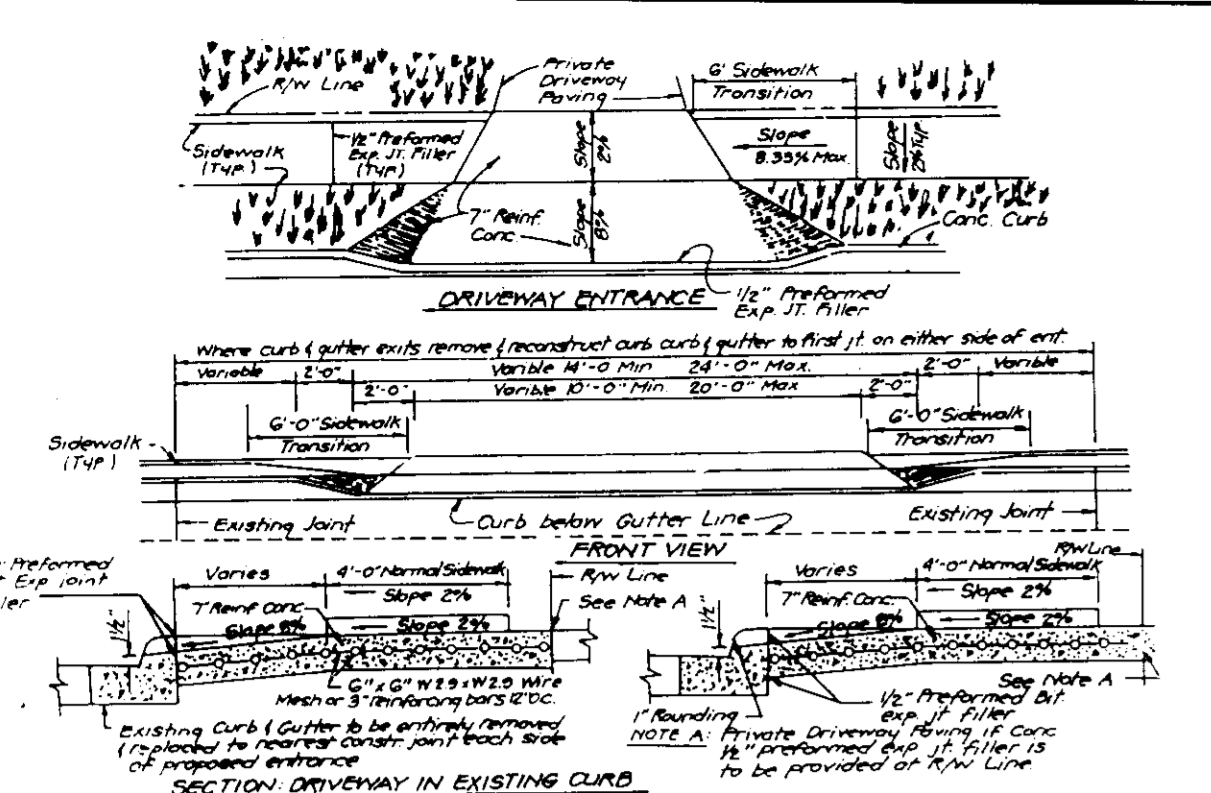 Private
Driveway
Paving
6' Sidewalk
Transition
R/W Line
Sidewalk
(Typ.)
1/2" Preformed
Exp. JT. Filler
(Typ)
Slope
2%
Slope
8.33% Max.
Slope
2% Typ.
7" Reinf.
Conc.
Slope
8%
Conc. Curb
DRIVEWAY ENTRANCE
1/2" Preformed
Exp. JT. Filler
Where curb & gutter exits remove & reconstruct curb curb & gutter to first jt. on either side of ent.
Variable
2'-0"
Varible 14'-0" Min
24'-0" Max.
2'-0"
Variable
2'-0"
Varible 10'-0" Min.
20'-0" Max
2'-0"
6'-0" Sidewalk
Transition
6'-0" Sidewalk
Transition
Sidewalk
(Typ)
Existing Joint
Curb below Gutter Line
Existing Joint
FRONT VIEW
Preformed
Exp joint
Varies
4'-0" Normal Sidewalk
Slope 2%
R/W Line
See Note A
7" Reinf. Conc.
Slope 8%
Slope 2%
1 1/2"
6" x 6" W2.9 x W2.9 Wire
Mesh or 3" reinforcing bars 12" O.C.
Existing Curb & Gutter to be entirely removed
& replaced to nearest constr. joint each side
of proposed entrance
SECTION: DRIVEWAY IN EXISTING CURB
R/W Line
Varies
4'-0" Normal Sidewalk
Slope 2%
7" Reinf. Conc.
Slope 8%
Slope 2%
1 1/2"
See Note A
1/2" Preformed Bit.
exp. jt. filler
1" Rounding
NOTE A: Private Driveway Paving if Conc
1/2" preformed exp. jt. filler is
to be provided at R/W Line.